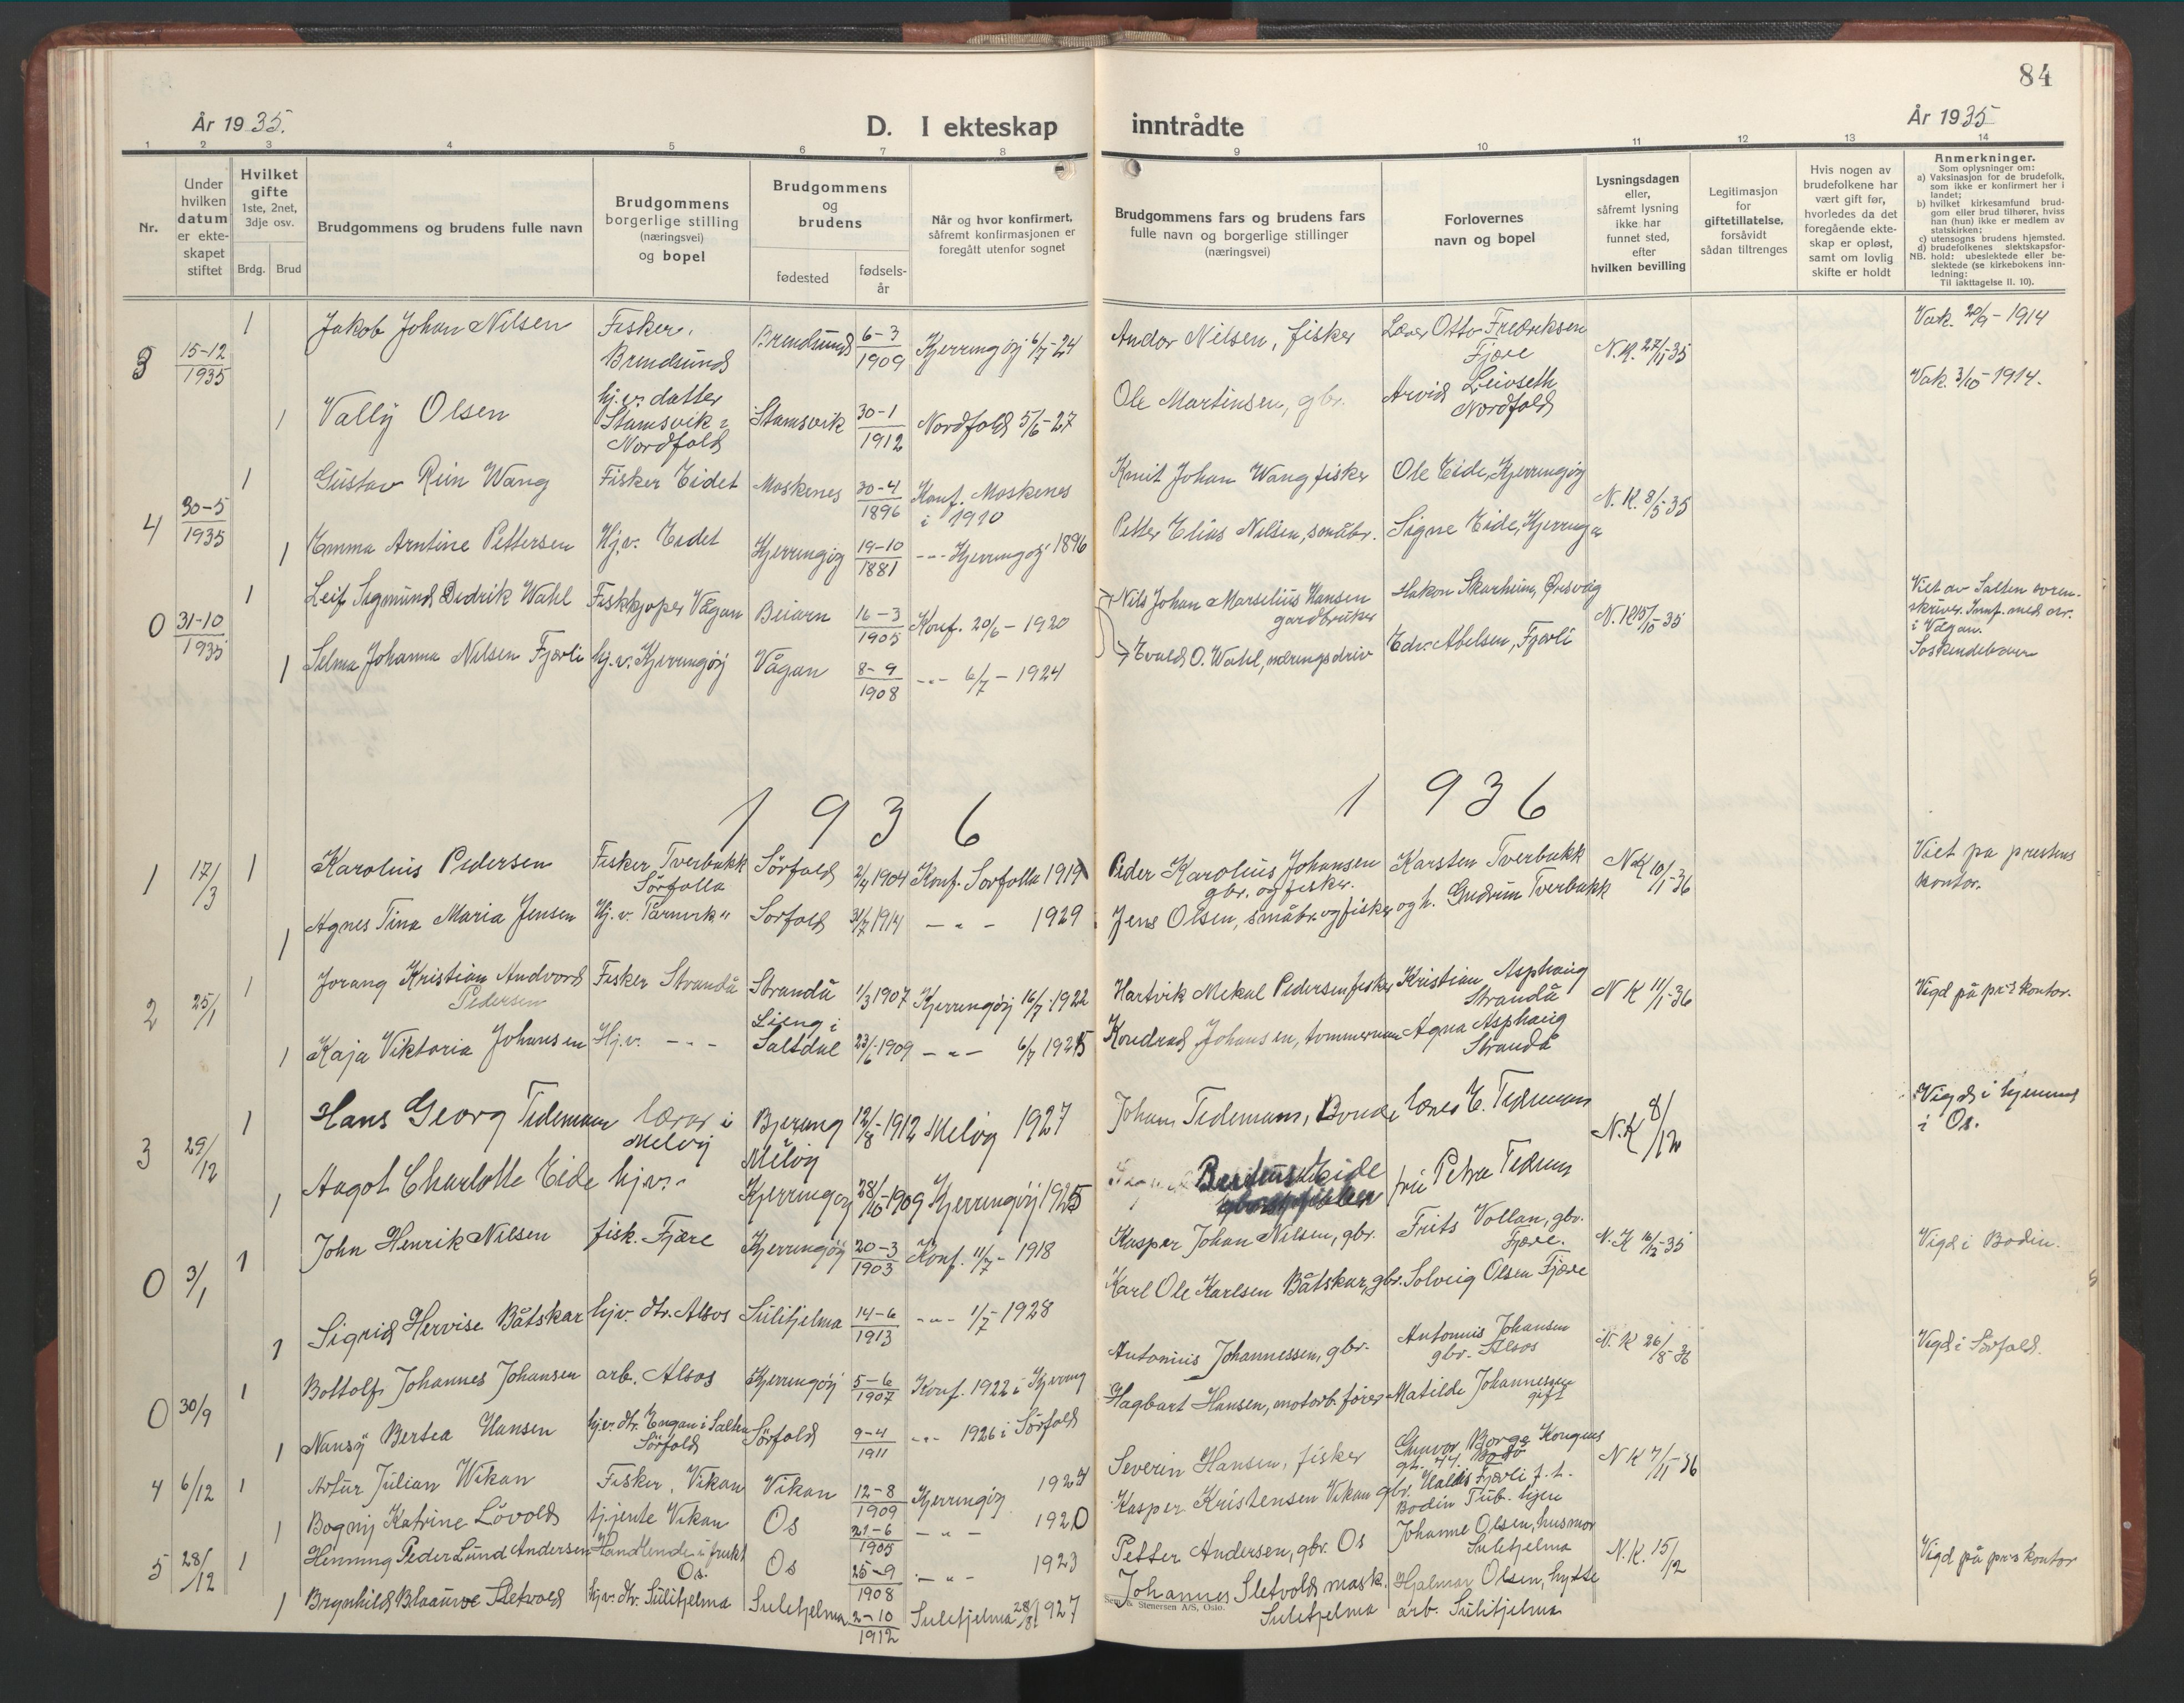 84
År 1935.
D. I ekteskap inntrådte
År 1935
1 2 3 4 5 6 7 8 9 10 11 12 13 14
Nr.
Under hvilken datum er ekteskapet stiftet
Hvilket gifte 1ste, 2net, 3dje osv.
Brdg. Brud
Brudgommens og brudens fulle navn
Brudgommens borgerlige stilling (næringsvei) og bopel
Brudgommens og brudens
fødested
fødselsår
Når og hvor konfirmert, såfremt konfirmasjonen er foregått utenfor sognet
Brudgommens fars og brudens fars fulle navn og borgerlige stillinger (næringsvei)
Forlovernes navn og bopel
Lysningsdagen eller, såfremt lysning ikke har funnet sted, efter hvilken bevilling
Legitimasjon for giftetillatelse, forsåvidt sådan tiltrenges
Hvis nogen av brudefolkene har vært gift før, hvorledes da det foregående ekteskap er opløst, samt om lovlig skifte er holdt
Anmerkninger.
Som oplysninger om:
a) Vaksinasjon for de brudefolk, som ikke er konfirmert her i landet;
b) hvilket kirkesamfund brudgom eller brud tilhører, hviss han (hun) ikke er medlem av statskirken;
c) utensogns brudens hjemsted.
d) brudefolkenes slektskapsforhold: ubeslektede eller beslektede (se kirkebokens innledning:
NB.
Til iakttagelse II. 10).
3 15-12 1935 1 Jakob Johan Nilsen Fisker, Brendsund Brendsund 6-3 1909 Kjerringöy 6/7-24 Andor Nilsen, fisker Lærer Otto Fredriksen Fjære N.K. 27/11-35 Vak. 20/9-1914
1 Vally Olsen hj.v. datter Stamsvik i Nordfold Stamsvik 30-1 1912 Nordfold 5/6-27 Ole Martinsen, gbr. Arvid Leivseth Nordfold Vak. 3/10-1914.
4 30-5 1935 1 Gustav Rein Wang Fisker Eidet Moskenes 30-4 1896 Konf. Moskenes i 1910 Knut Johan Wang fisker Ole Eide, Kjerringöy N.K. 8/5-35
1 Emma Arntine Pettersen Hj.v. Eidet Kjerringöy 19-10 1881 -"- Kjerringöy 1896 Petter Elias Nilsen, småbr. Signe Eide, Kjerringö
0 31-10 1935 1 Leif Sigmund Didrik Wahl Fiskkjøper Vågan Beiarn 16-3 1905 Konf. 20/6-1920 Nils Johan Marselius Hansen gardbruker Hakon Skarheim, Øresvåg N.K 15/10-35 Viet av Salten soren-skriver. Innf. med nr. i Vågan. Söskendebarn
1 Selma Johanna Nilsen Fjærli hj.v. Kjerringöy Vågan 8-9 1908 -"- 6/7-1924 Evald O. Wahl, næringsdriv Edv. Abelsen, Fjærli
1936 1936
1 17/3 1 Karolius Pedersen Fisker, Tverbakk Sörfolla Sörfold 2/4 1904 Konf. Sorfolla 1919 Peder Karolius Johansen gbr. og fisker. Karsten Tverbakk N.K 10/1-36 Viet pa prestens kontor.
1 Agnes Tina Maria Jensen Hj.v. Tårnvik " Sorfold 31/7 1914 -"- 1929 Jens Olsen, småbr. og fisker og h. Gudrun Tverbakk
2 25/1 1 Jorang Kristian Andvord Pedersen Fisker Strandå Strandå 1/3 1907 Kjerringöy 16/7-1922 Hartvik Mekal Pedersen fisker Kristian Asphaug Strandå N K 11/1-36 Vigd på pr:s kontor.
1 Kaja Viktoria Johansen Hj.v. -"- Lieng i Saltdal 23/6-1909 -"- 6/7 1925 Kondrad Johansen, tommerman Agna Asphaug Strandå
3 29/12 1 Hans Georg Tidemann lærer i Meløy Bjerang Meløy 12/8-1912 Meløy 1927 Johan Tidemann, Bonde Lones E. Tidemann N.K 8/12 Vigd i hjemmet i Os.
1 Aagot Charlotte Eide hj.v. Kjerringöy 28/10-1909 Kjerringöy 1925 Eide fru Petra Tidemn
0 3/1 1 John Henrik Nilsen fisk. Fjære Kjerringöy 20-3 1903 Konf. 11/7-1918 Kasper Johan Nilsen, gbr. Frits Vollan, gbr. Fjære. N.K 16/12-35 Vigd i Bodin.
1 Sigrid Hervise Båtskar hjv. dtr. Alsos Sulitjelma 14-6 1913 -"- 1/7-1928 Karl Ole Karlsen Båtskar, gbr. Solveig Olsen Fjære
0 30/9 1 Bottolf Johannes Johansen arb. Alsos Kjerringöy 5-6 1907 Konf. 1922 i Kjerring Antonius Johannessen, gbr. Antonius Johansen gbr. Alsos N.K 26/8-36 Vigd i Sörfold.
1 Nansy Bertea Hansen hj.v. dtr. Engan i Salten Sörfold Sörfold 9-4 1911 -"- 1926 i Sörfold Hagbart Hansen, motorb.fører Matilde Johannessen gift
4 6/12 1 Artur Julian Wikan Fisker, Vikan Vikan 12-8 1909 Kjerringöy 1924 Severin Hansen, fisker Gunvor Borge Kongens gt. 44. Bodö N K 7/11-36
1 Bogny Katrine Lövold tjente Vikan Os 21-6 1905 -"- 1920 Kasper Kristensen Vikan gbr. Haldis Fjærli f.t. Bodin Tub. hjem
5 28/12 1 Henning Peder Lund Andersen Handlende i frukt Os. Os 25-9 1908 -"- 1923 Petter Andersen, gbr. Os Johanne Olsen, husmor Sulitjelma N.K. 15/12 Vigd på pr:s kontor
1 Brynhild Blaauwe Sletvold hj.v. dtr. Sulitjelma Sulitjelma 2-10 1912 Sulitjelma 28/8 1927 Johannes Sletvold mask. Sulitjelma Hjalmar Olsen, hytte arb. Sulitjelma
Sem & Stenersen A/S, Oslo.